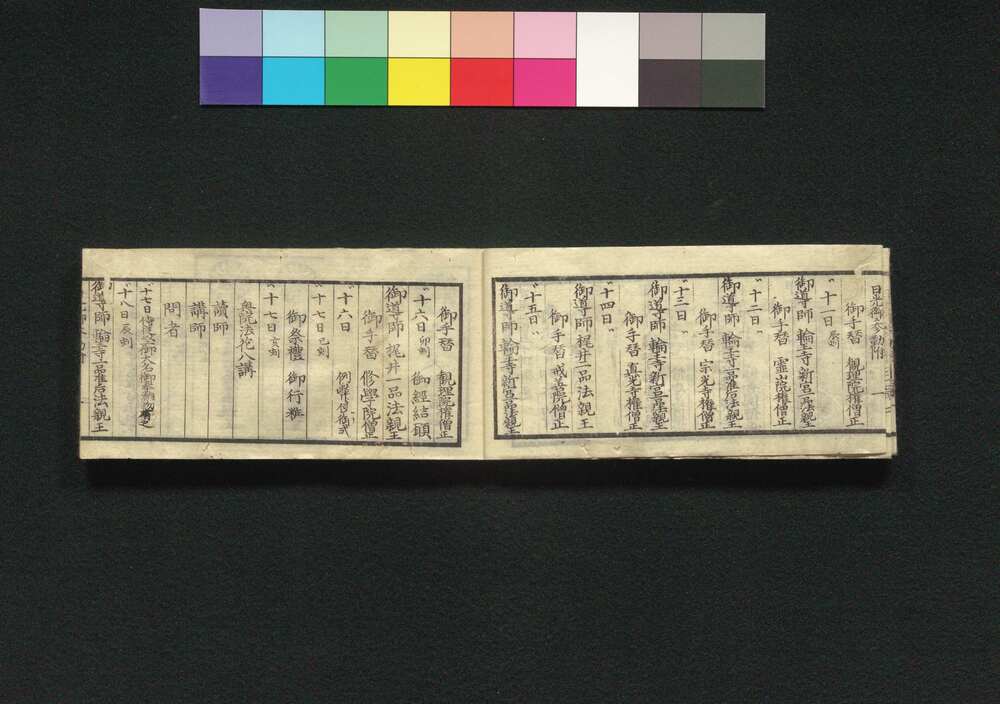 日光御参勤附
御手替 観理院権僧正
〃十一日 辰刻
御導師 輪王寺新宮法親王
御手替 霊山院権僧正
〃十二日 〃
御導師 輪王寺一品准后法親王
御手替 宗光寺権僧正
〃十三日 〃
御導師 輪王寺新宮法親王
御手替 真光寺権僧正
〃十四日 〃
御導師 梶井一品法親王
御手替 戒善院僧正
〃十五日 〃
御導師 輪王寺新宮法親王
御手替 観理院権僧正
〃十六日 卯刻 御経結願
御導師 梶井一品法親王
御手替 修學院僧正
〃十六日 例幣使御式
〃十七日 巳刻
御祭禮 御行粧
〃十七日 亥刻
無説法花八講
讀師
講師
問者
〃十七日
〃十八日 辰刻
御導師 輪王寺一品准后法親王